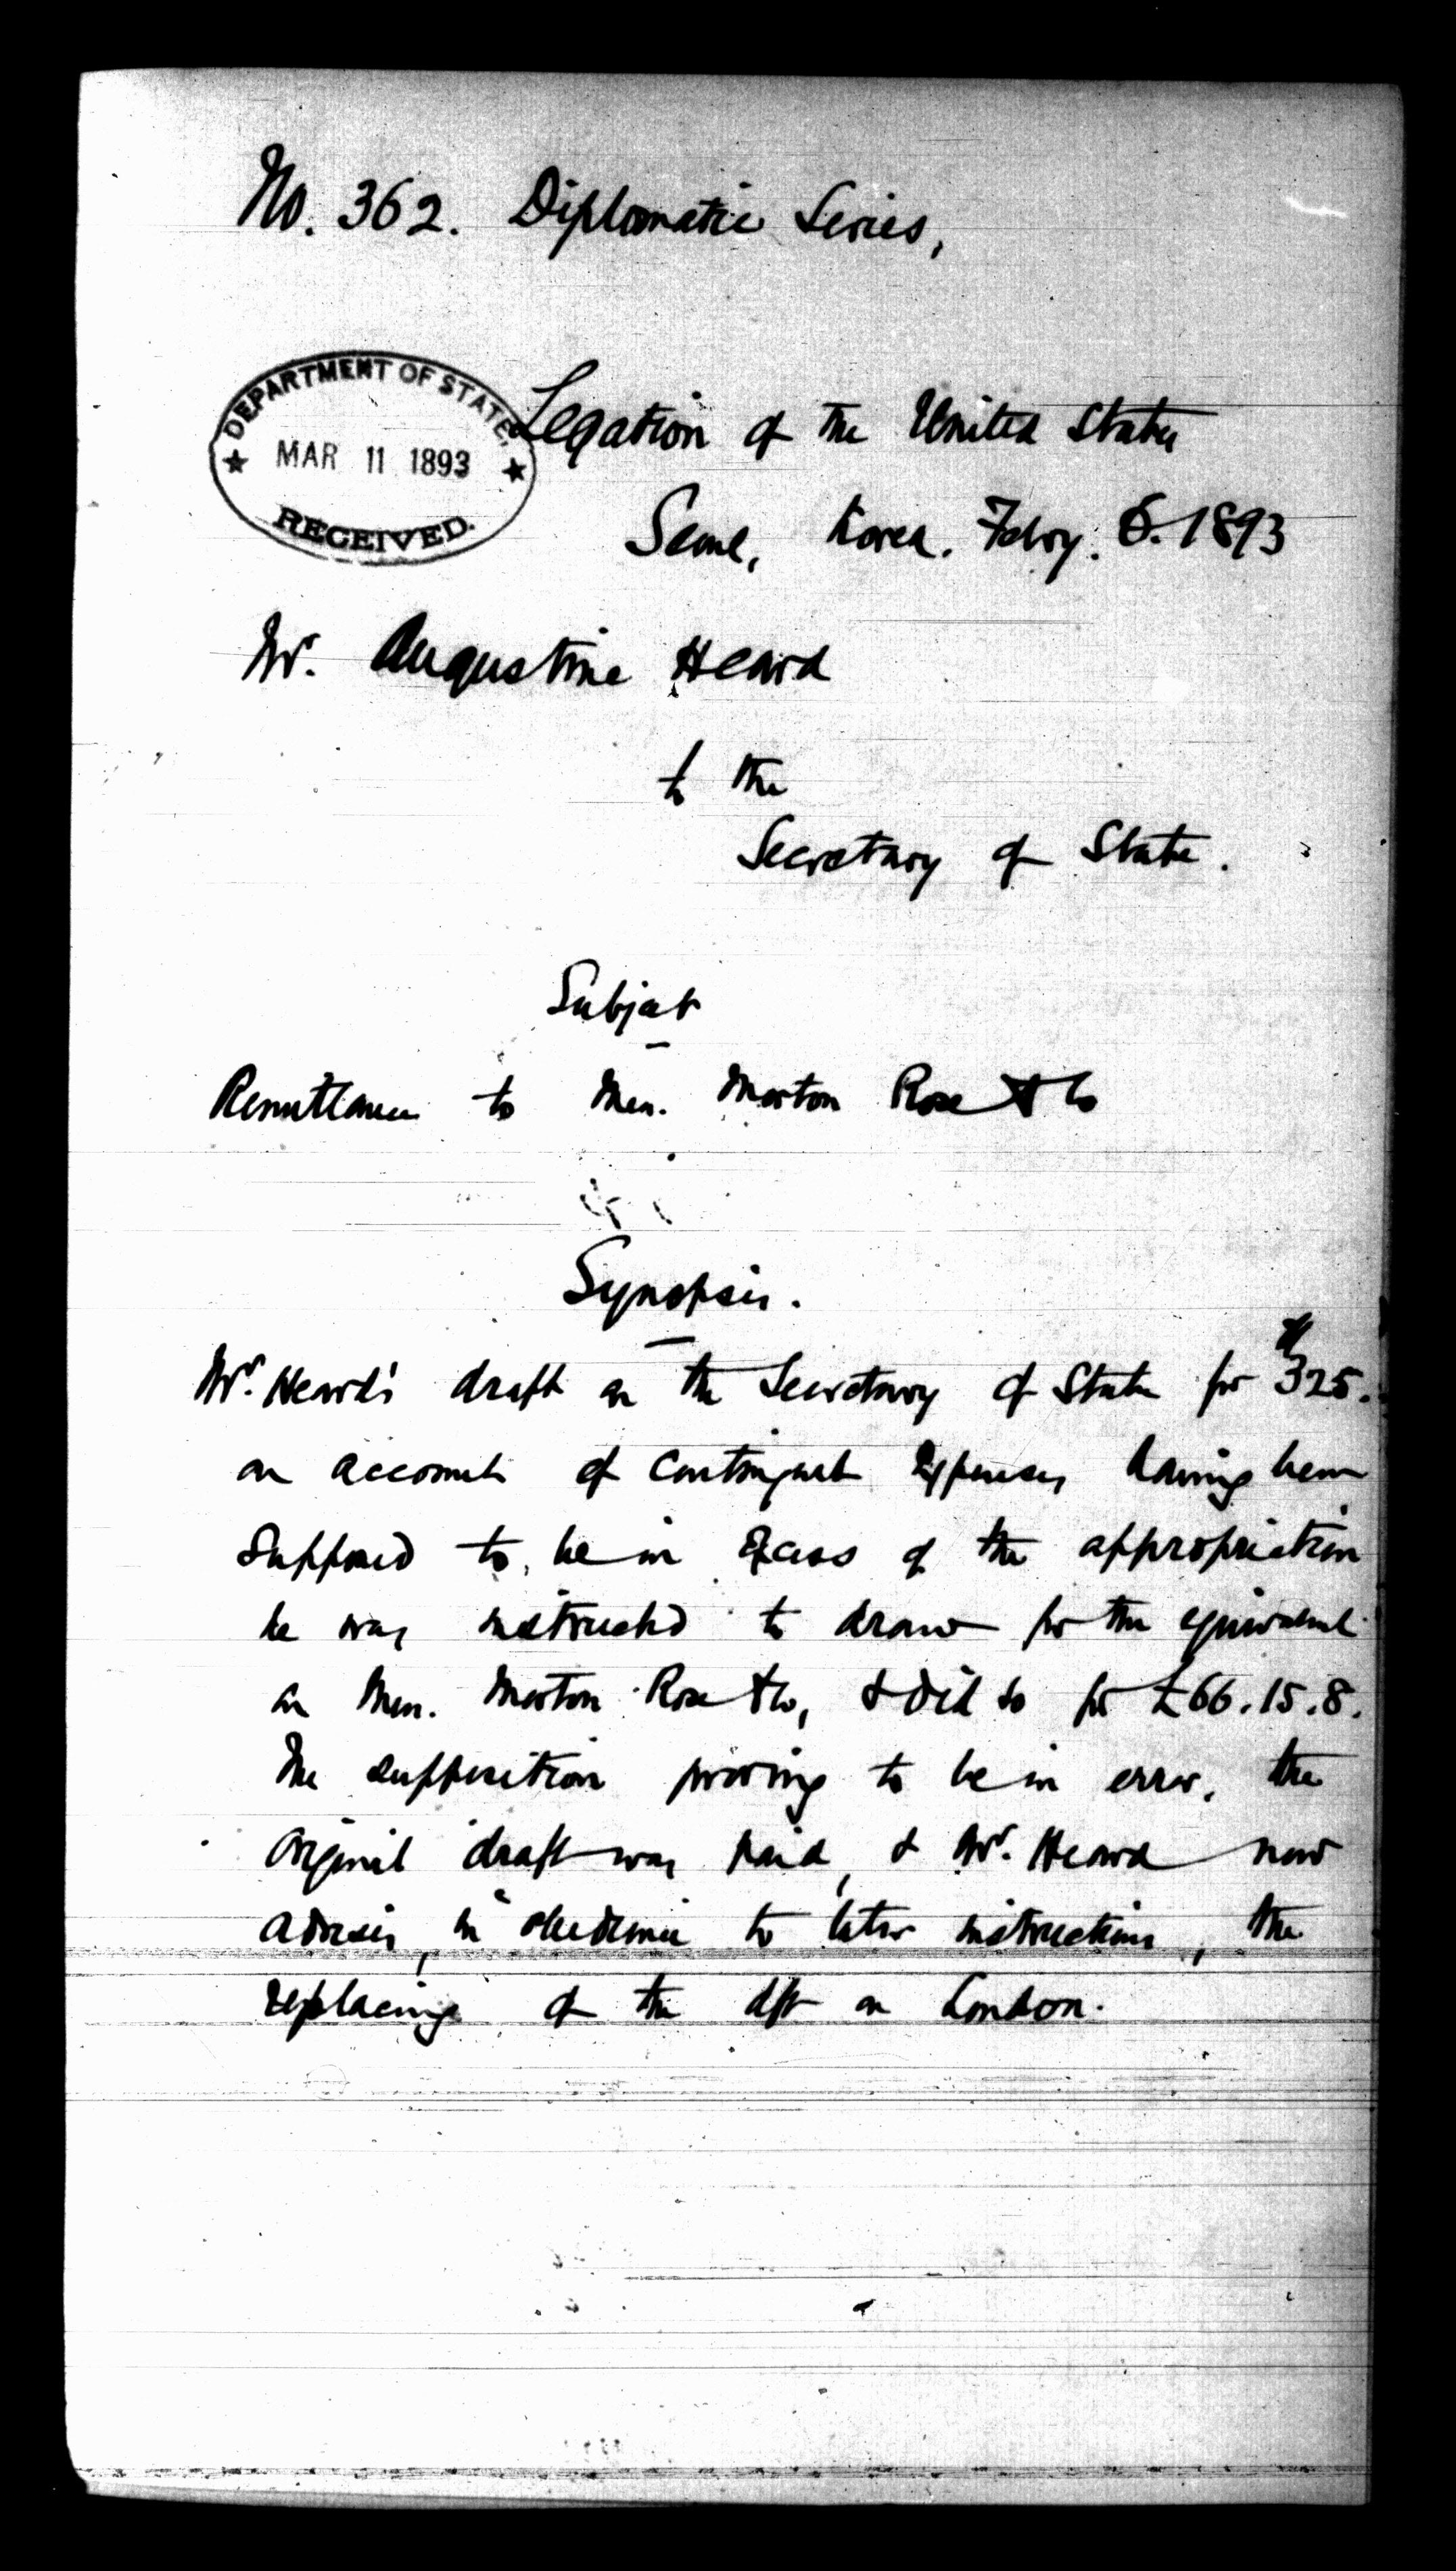 No. 362. Diplomatic Series,
DEPARTMENT OF STATE.
MAR 11 1893
RECEIVED.
Legation of the United States
Seoul, Korea. Febry. 6. 1893
Mr. Augustine Heard
to the
Secretary of State.
Subject
Remittance to Mess. Morton Rose & Co
Synopsis.
Mr. Heard's draft on the Secretary of State for $325.
on account of Contingent Expenses having been
supposed to be in Excess of the appropriation
he was instructed to draw for the equivalent
on Mess. Morton Rose & Co, & did so for £66.15.8.
The supposition proving to be in error, the
original draft was paid, & Mr. Heard now
advises, in obedience to later instructions, the
replacing of the dft on London.